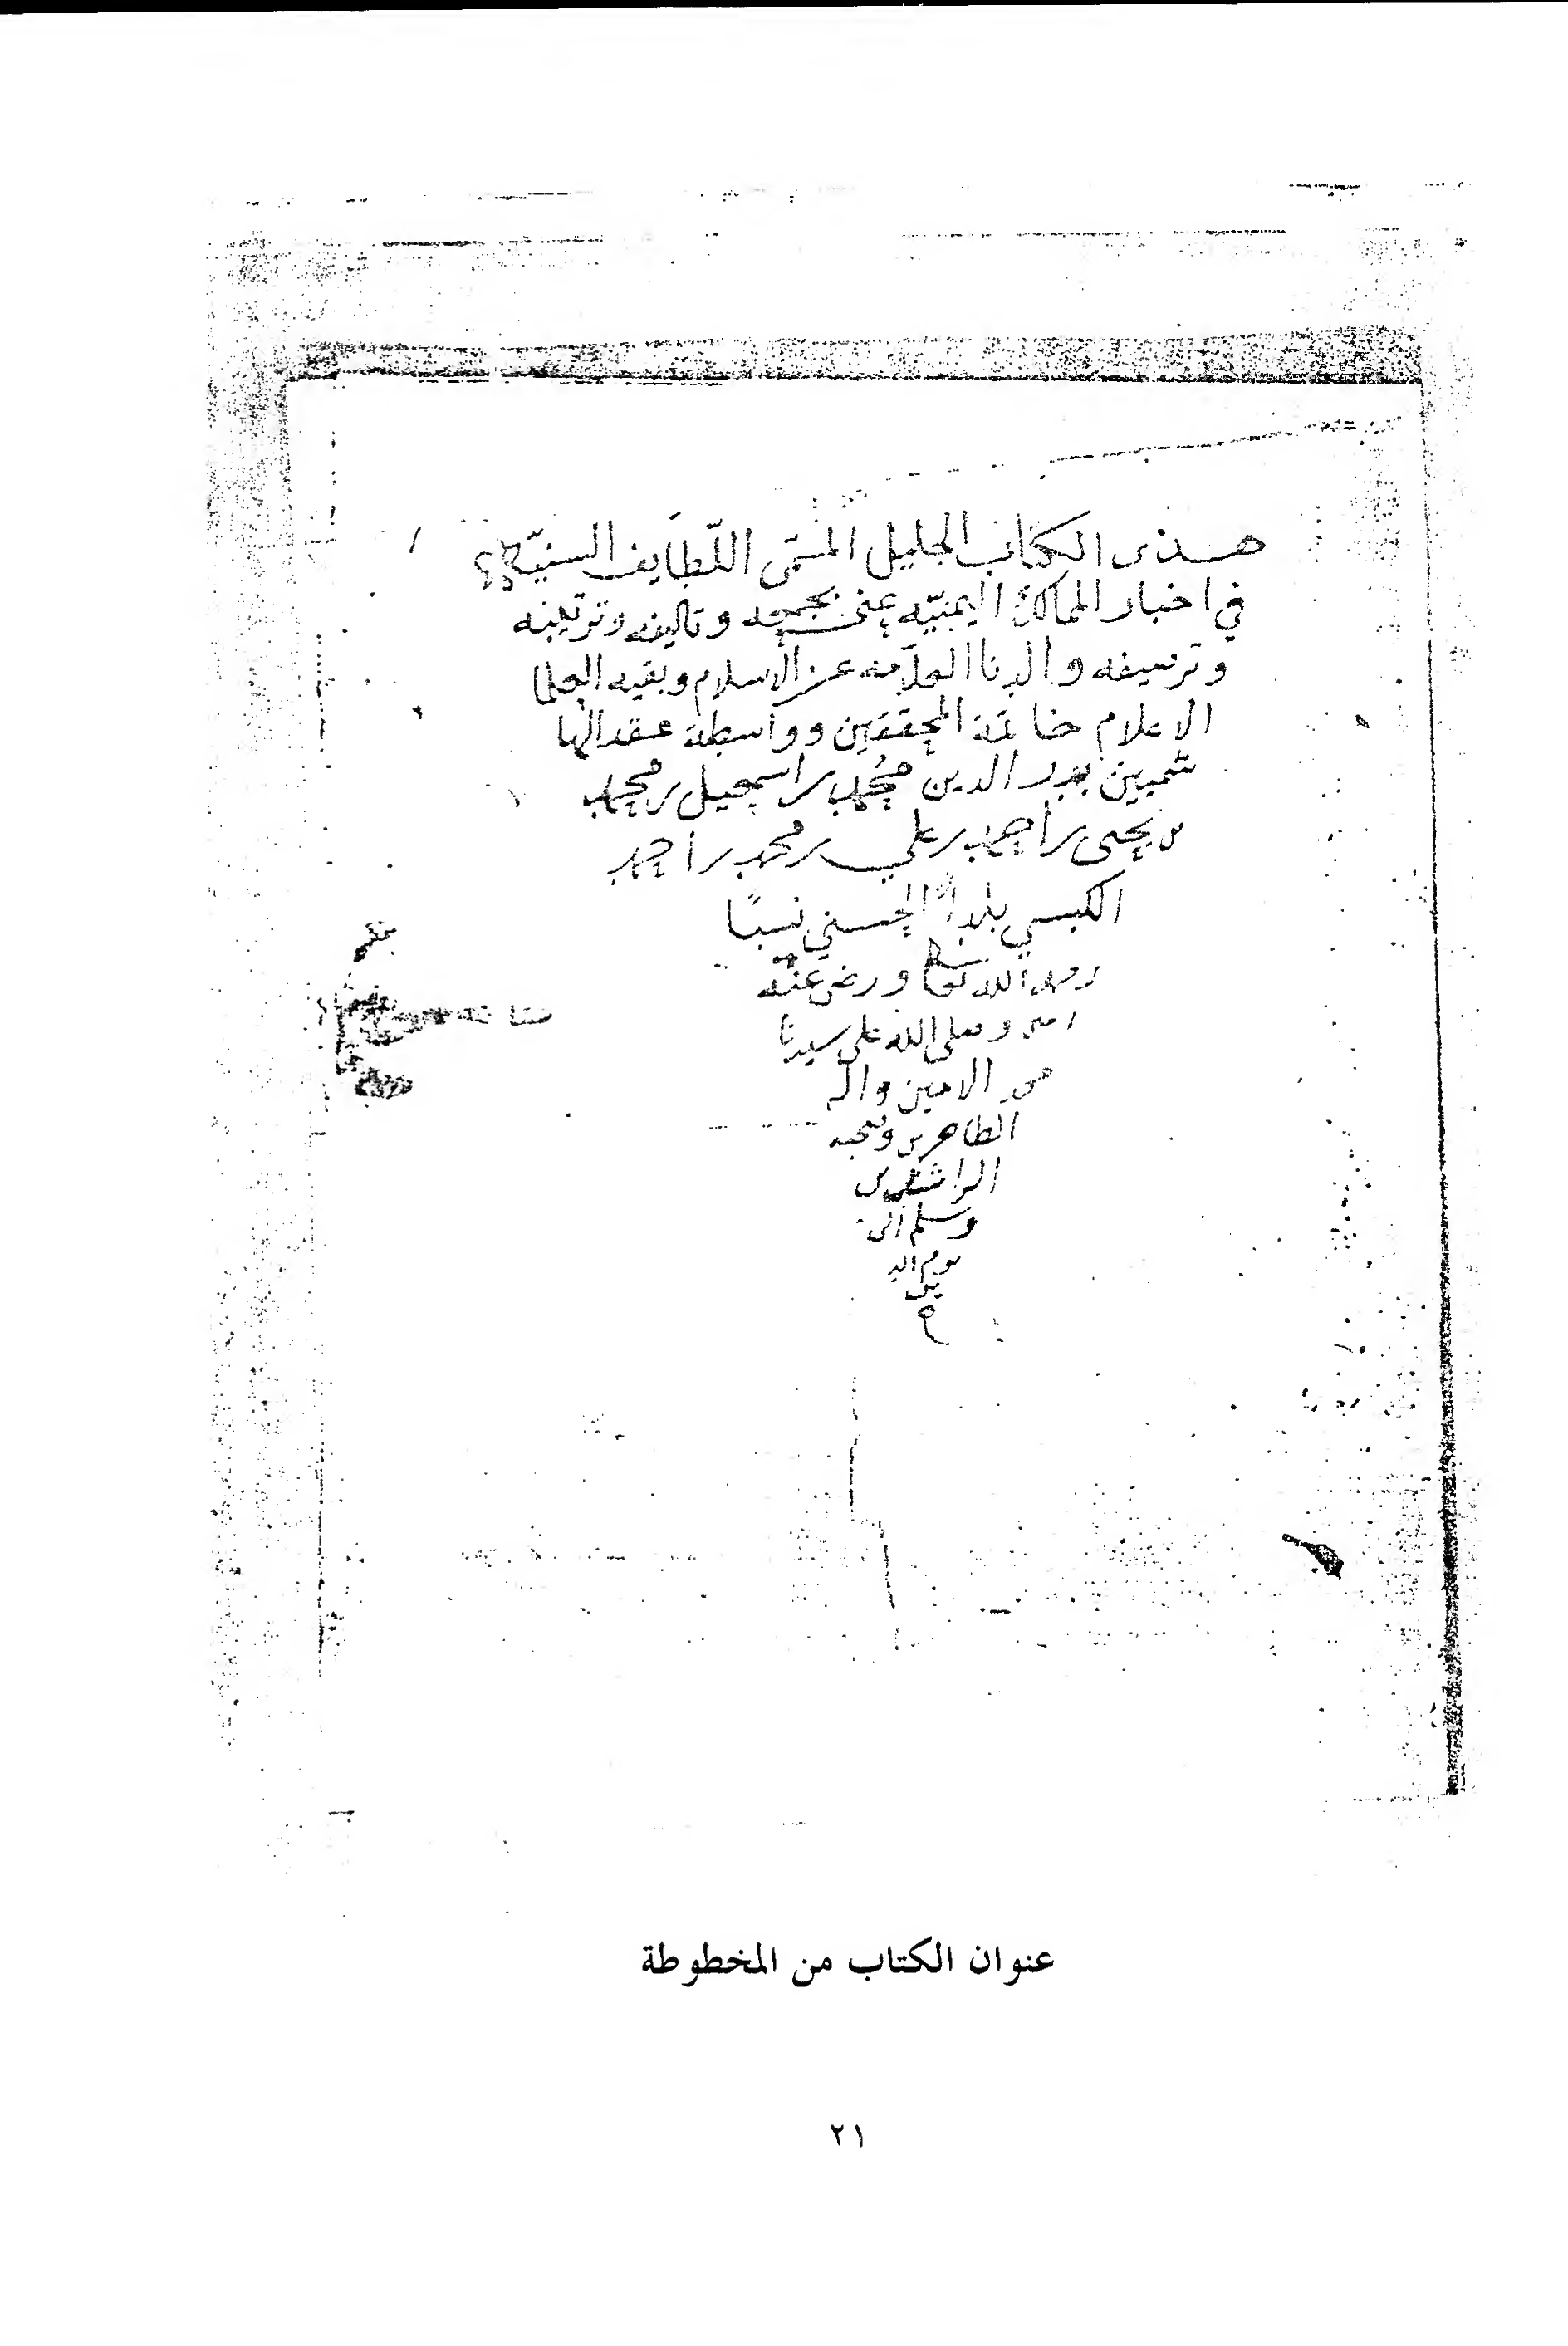 هــذى الكتاب الجليل المسمّى اللّطايف السنيّة
في اخبار الممالك اليمنيّه عنى بجمعه وتاليفه وترتيبه
وترصيفه والدنا العلّامه عز الاسلام وبقيه العلما
الاعلام خاتمة المحققين وواسطة عقد الها
شميين بدر الدين محمد بن اسمعيل بن محمد
بن يحيى بن احمد بن علي بن محمد بن احمد
الكبسي بلداً الحسني نسبًا
رحمه الله تعا ورضى عنه
امين وصلى الله على سيدنا
محمد الامين واله
الطاهرين وصحبه
الراشدين
وسلم الى
يوم الد
ين
عنوان الكتاب من المخطوطة
٢١